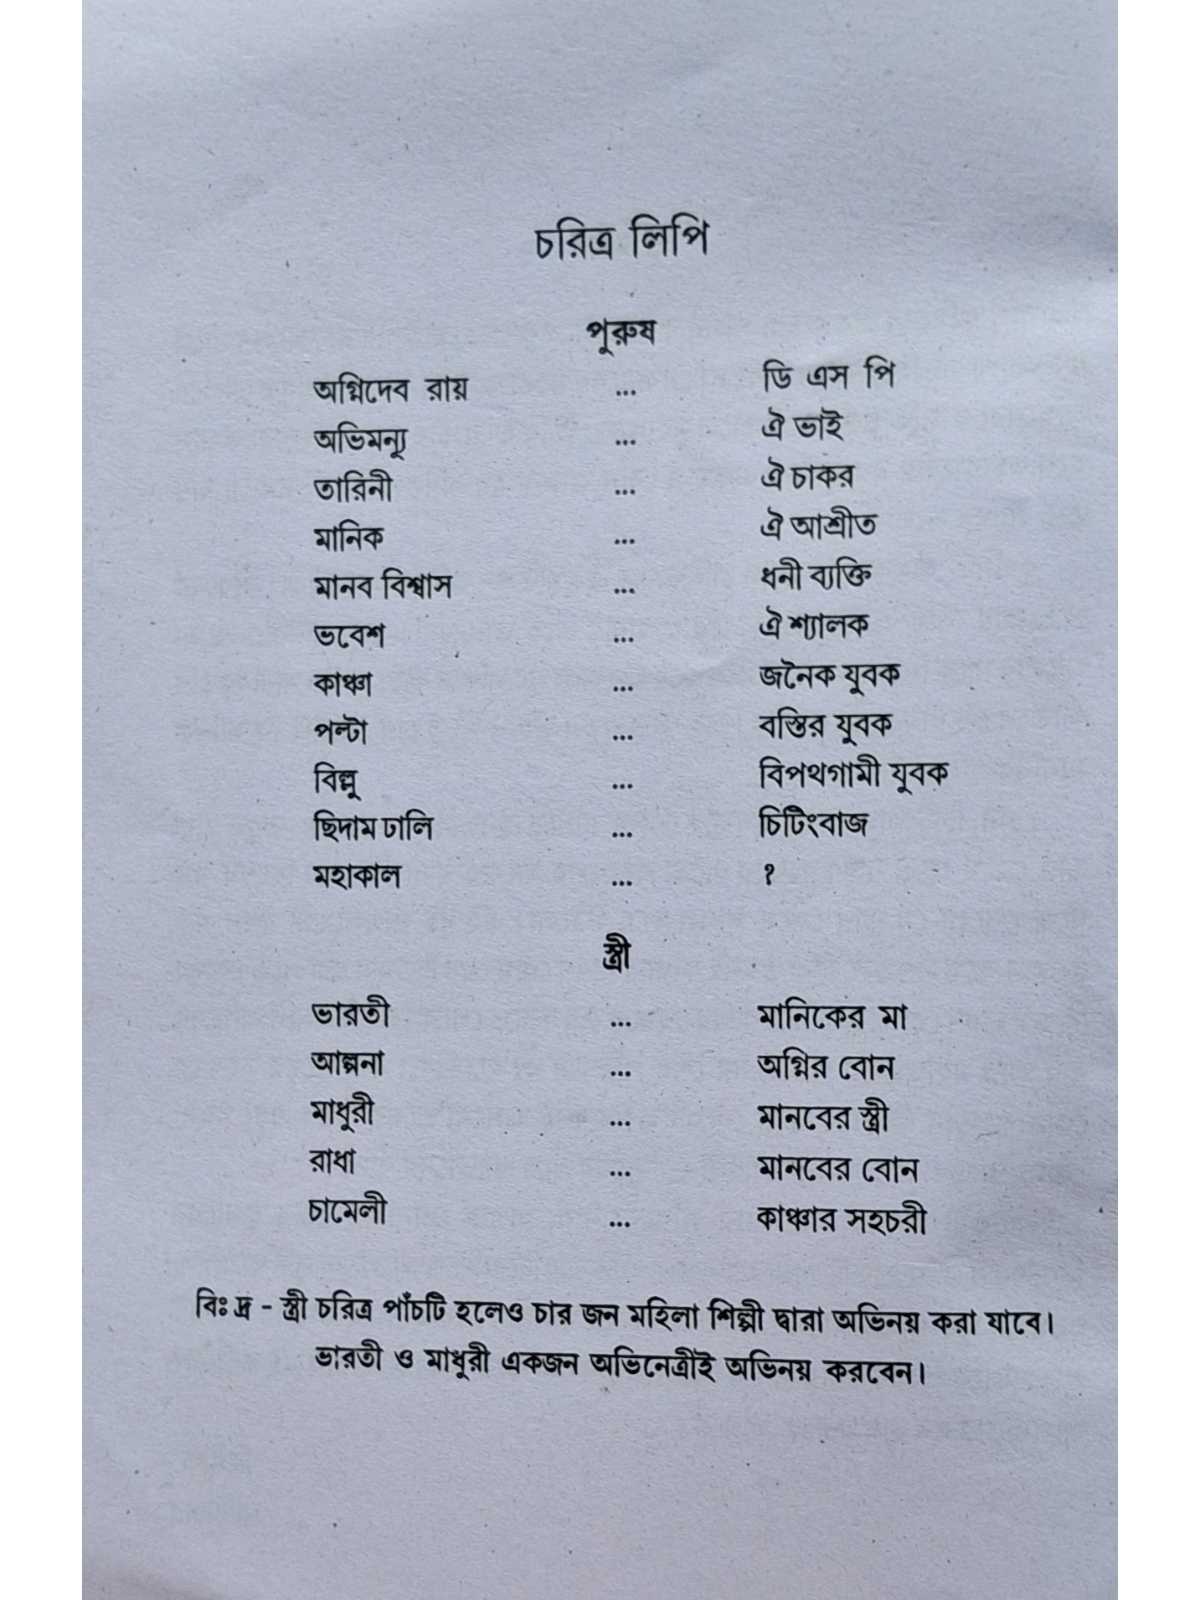 চরিত্র লিপি
পুরুষ
অগ্নিদেব রায় ... ডি এস পি
অভিমন্যু ... ঐ ভাই
তারিনী ... ঐ চাকর
মানিক ... ঐ আশ্রীত
মানব বিশ্বাস ... ধনী ব্যক্তি
ভবেশ ... ঐ শ্যালক
কাঞ্চা ... জনৈক যুবক
পল্টা ... বস্তির যুবক
বিল্লু ... বিপথগামী যুবক
ছিদাম ঢালি ... চিটিংবাজ
মহাকাল ... ?
স্ত্রী
ভারতী ... মানিকের মা
আল্পনা ... অগ্নির বোন
মাধুরী ... মানবের স্ত্রী
রাধা ... মানবের বোন
চামেলী ... কাঞ্চার সহচরী
বিঃ দ্র - স্ত্রী চরিত্র পাঁচটি হলেও চার জন মহিলা শিল্পী দ্বারা অভিনয় করা যাবে।
ভারতী ও মাধুরী একজন অভিনেত্রীই অভিনয় করবেন।